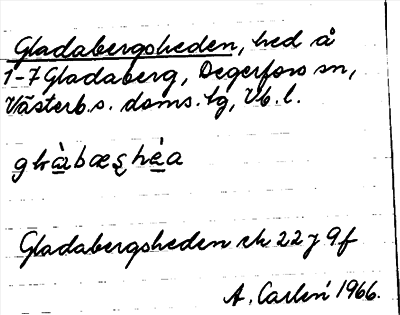 Gladabergsheden, hed å
1-7 Gladaberg, Degerfors sn,
Västerb.s. doms. tg, Vb. l.
Gladabergsheden rk 22 J 9f
A. Carlén 1966.